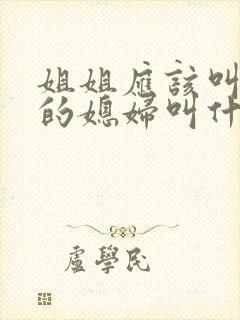 姐姐應該叫
的媳婦叫什
盧學民